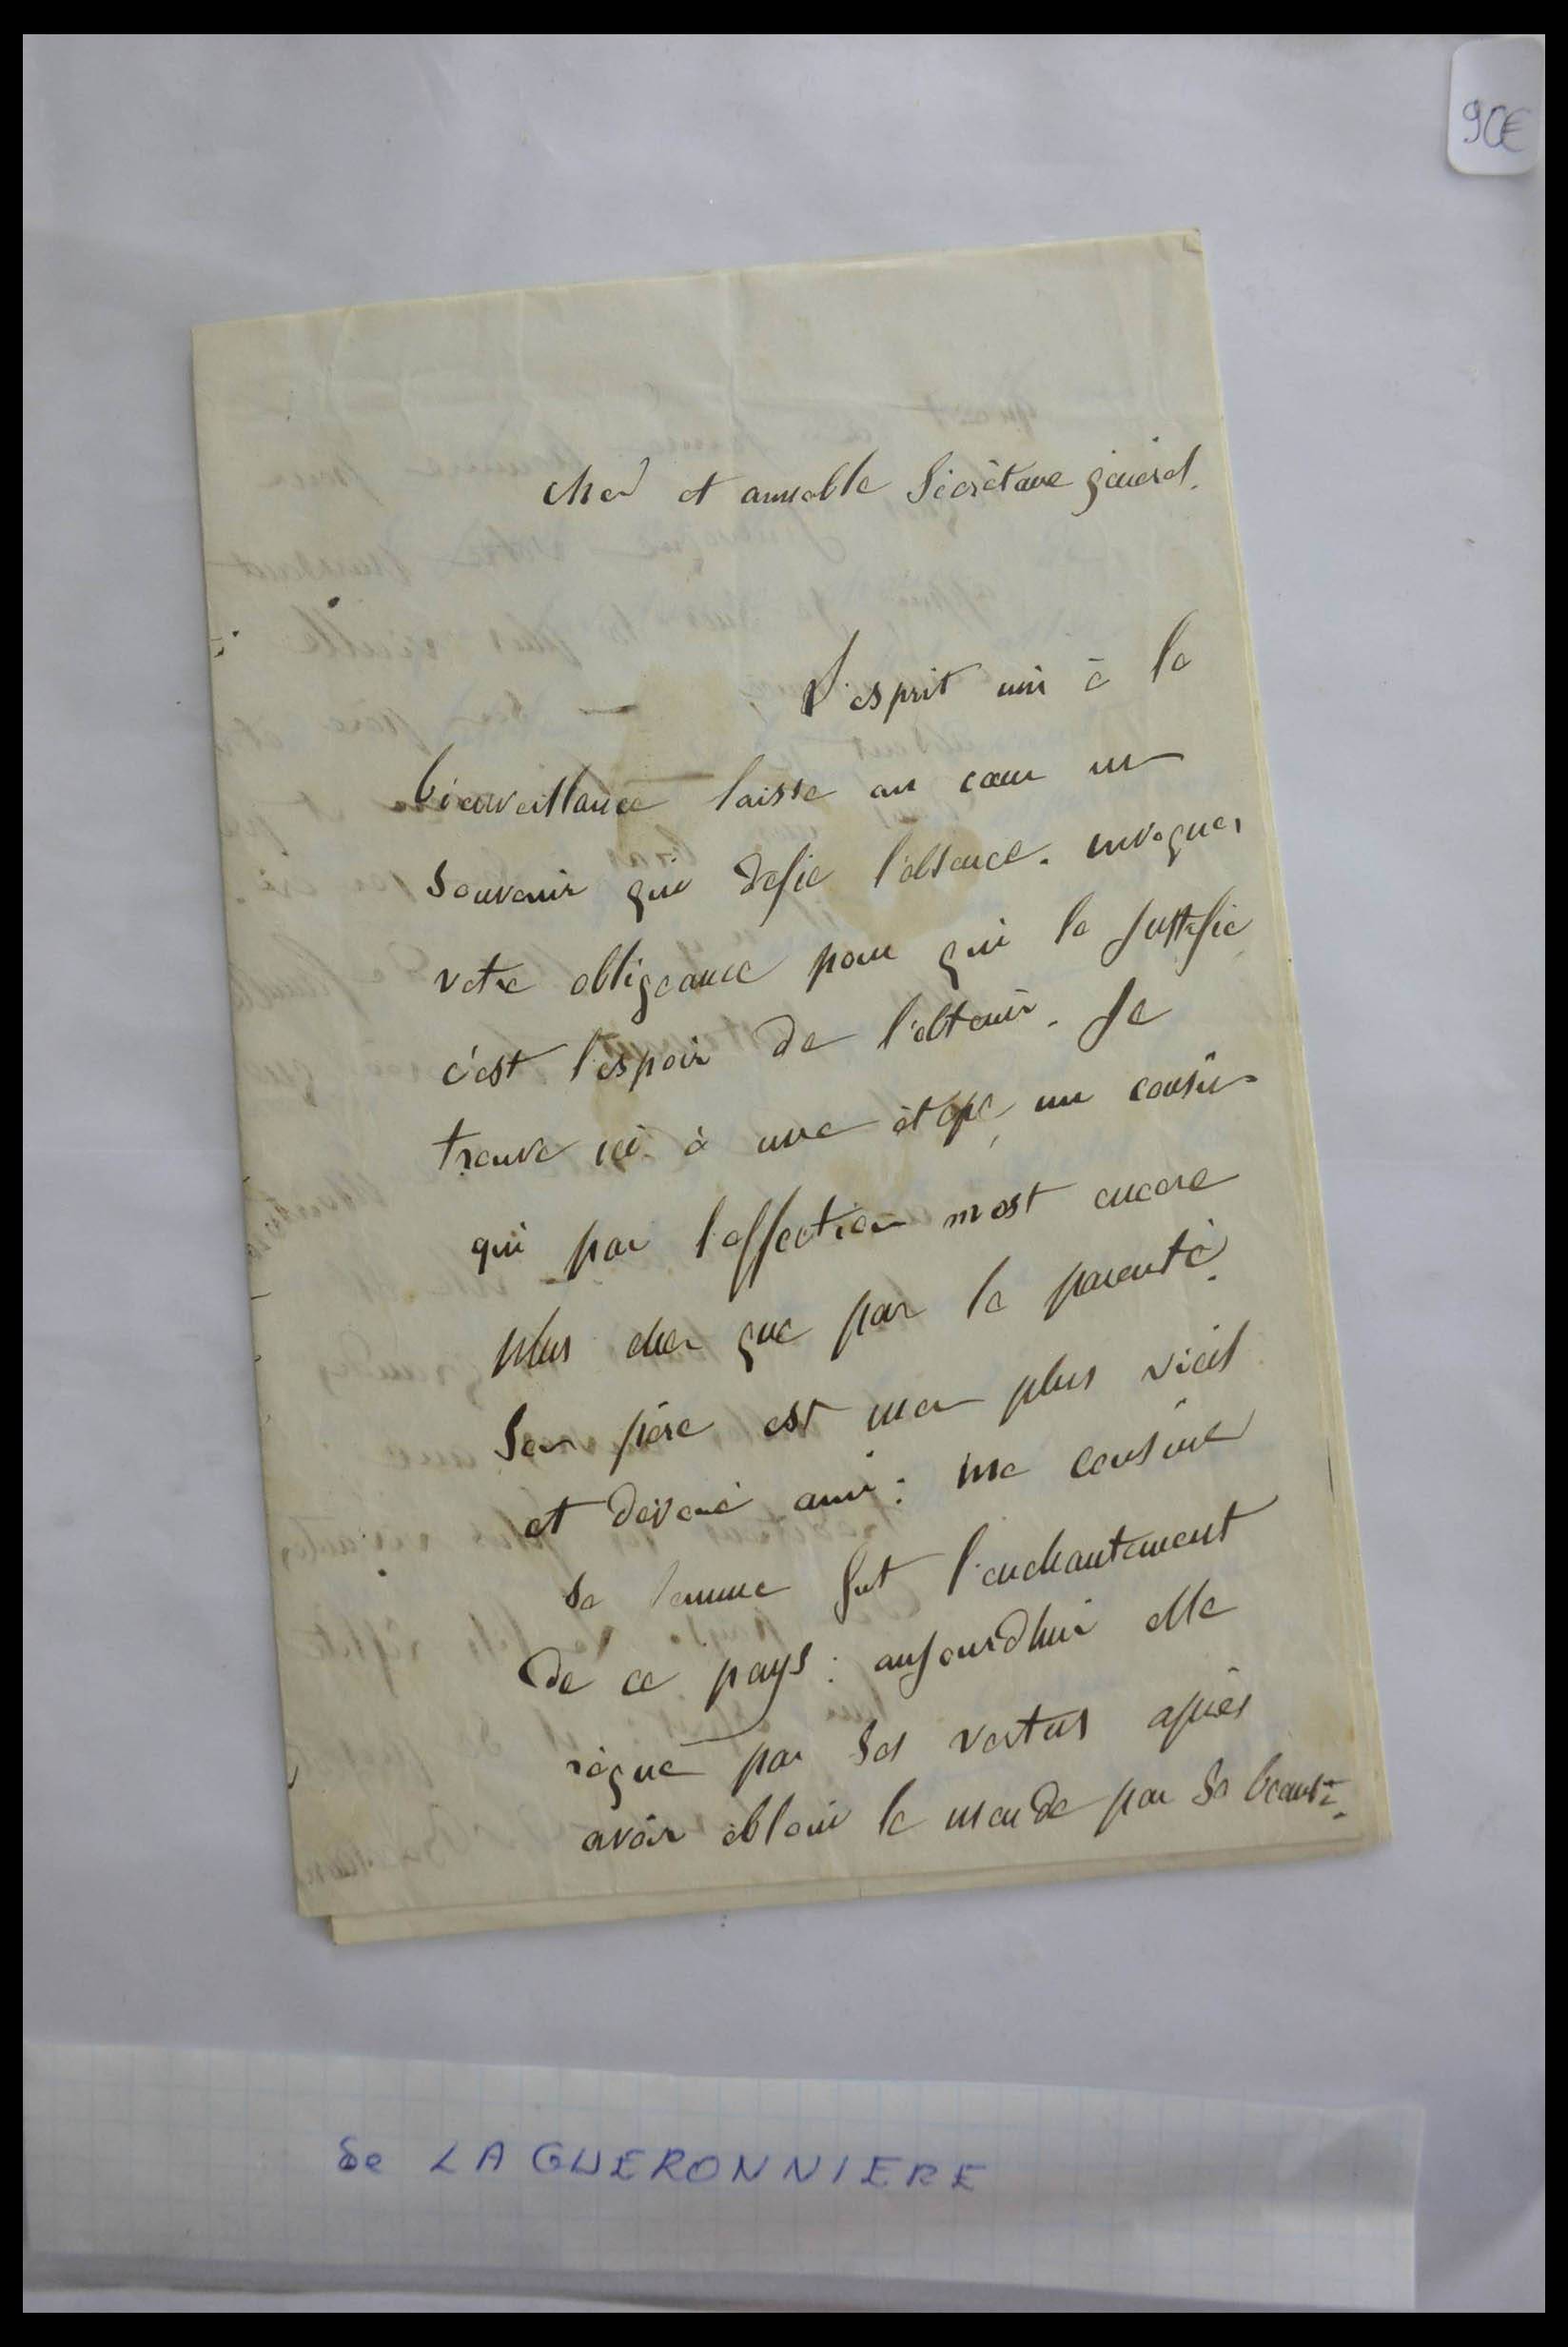 90€
cher et aimable Sécrétaire général.
L'esprit uni à la
bienveillance laisse au cœur un
souvenir qui defie l'absence. invoquer
votre obligeance pour qui la justifie
c'est l'espoir de l'obtenir. Je
trouve ici à une étape, un cousin
qui par l'affection m'est encore
plus cher que par la parenté.
Son père est mon plus vieil
et dévoué ami : ma cousine
sa femme fut l'enchantement
de ce pays : aujourd'hui elle
règne par ses vertus après
avoir ébloui le monde par sa beauté.
de LA GUERONNIERE